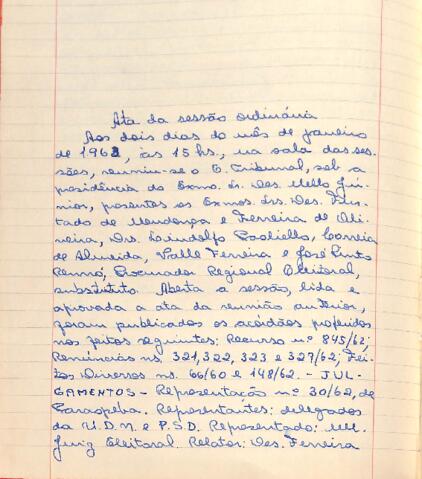 Ata da sessão ordinária
Aos dois dias do mês de janeiro
de 1962, às 15 hs., na sala das ses-
sões, reuniu-se o E. Tribunal, sob a
presidência do Exmo. Sr. Des. Mello Jú-
nior, presentes os Exmos. Srs. Des. Fur-
tado de Mendonça e Ferreira de Oli-
veira, Drs. Lindolfo Paoliello, Correia
de Almeida, Valle Ferreira e José Pinto
Rennó, Procurador Regional Eleitoral,
substituto. Aberta a sessão, lida e
aprovada a ata da reunião anterior,
foram publicados os acórdãos proferidos
nos feitos seguintes: Recurso nº 845/62;
Renúncias ns. 321, 322, 323 e 327/62; Fei-
tos Diversos ns. 66/60 e 148/62. - JUL-
GAMENTOS - Representação nº 30/62, de
Paraopeba. Representantes: delegados
da U.D.N. e P.S.D. Representado: MM.
Juiz Eleitoral. Relator: Des. Ferreira